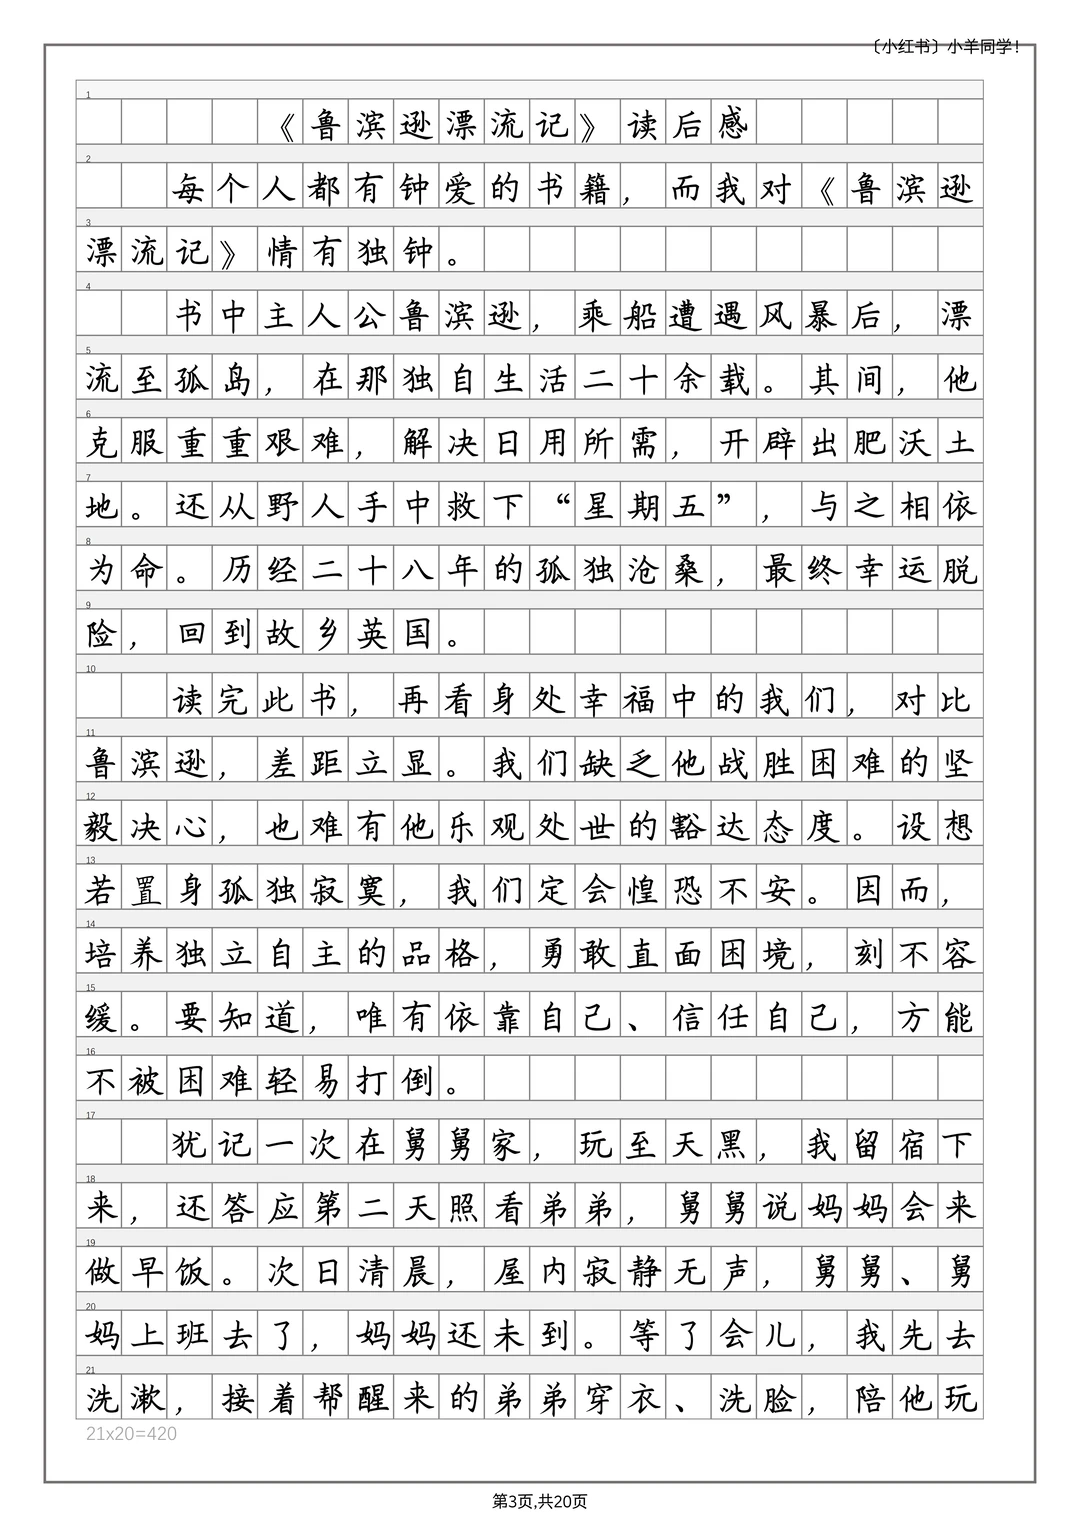 〔小红书〕小羊同学！
1
《鲁滨逊漂流记》读后感
2
每个人都有钟爱的书籍，而我对《鲁滨逊
3
漂流记》情有独钟。
4
书中主人公鲁滨逊，乘船遭遇风暴后，漂
5
流至孤岛，在那独自生活二十余载。其间，他
6
克服重重艰难，解决日用所需，开辟出肥沃土
7
地。还从野人手中救下“星期五”，与之相依
8
为命。历经二十八年的孤独沧桑，最终幸运脱
9
险，回到故乡英国。
10
读完此书，再看身处幸福中的我们，对比
11
鲁滨逊，差距立显。我们缺乏他战胜困难的坚
12
毅决心，也难有他乐观处世的豁达态度。设想
13
若置身孤独寂寞，我们定会惶恐不安。因而，
14
培养独立自主的品格，勇敢直面困境，刻不容
15
缓。要知道，唯有依靠自己、信任自己，方能
16
不被困难轻易打倒。
17
犹记一次在舅舅家，玩至天黑，我留宿下
18
来，还答应第二天照看弟弟，舅舅说妈妈会来
19
做早饭。次日清晨，屋内寂静无声，舅舅、舅
20
妈上班去了，妈妈还未到。等了会儿，我先去
21
洗漱，接着帮醒来的弟弟穿衣、洗脸，陪他玩
21x20=420
第3页,共20页